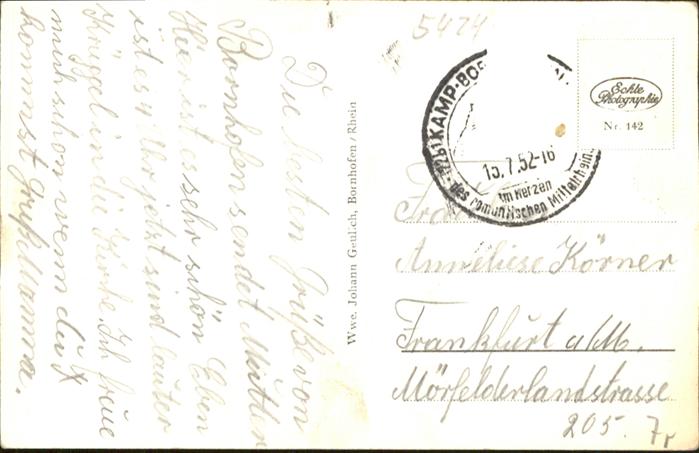 Die besten Grüße von
Bornhofen sendet Mutter
Hier ist es sehr schön Eben
ist es 4 Uhr jetzt sind lauter
Krüppel in die Kirche. Ich freue
mich schon wenn du
kommst Gruß Mamma.
Wwe. Johann Geulich, Bornhofen/Rhein
5474
KAMP-BOR
15.7.52-16
Im Herzen
des romantischen Mittelrheins
Echte
Photographie
Nr. 142
Frau
Anneliese Körner
Frankfurt a/M.
Mörfelderlandstrasse
205.